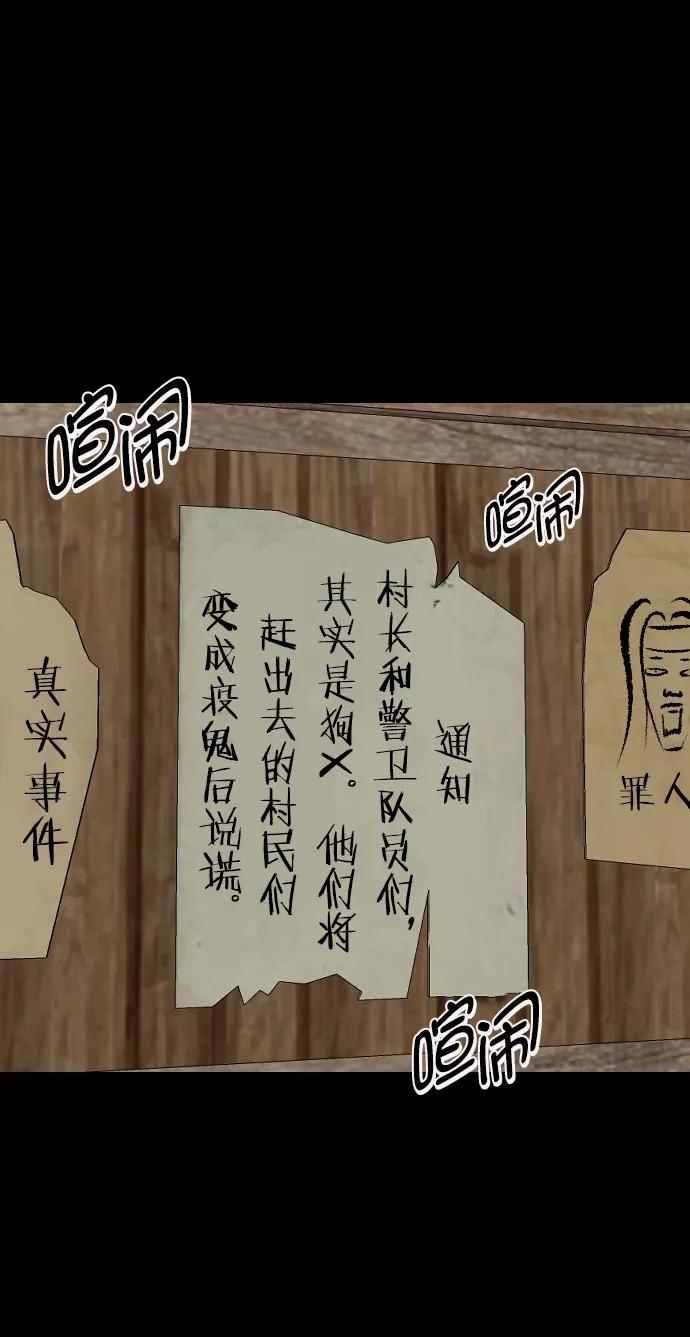 喧闹
喧闹
通知
村长和警卫队员们，
其实是狗X。他们将
赶出去的村民们
变成疫鬼后说谎。
真实事件
罪人
喧闹